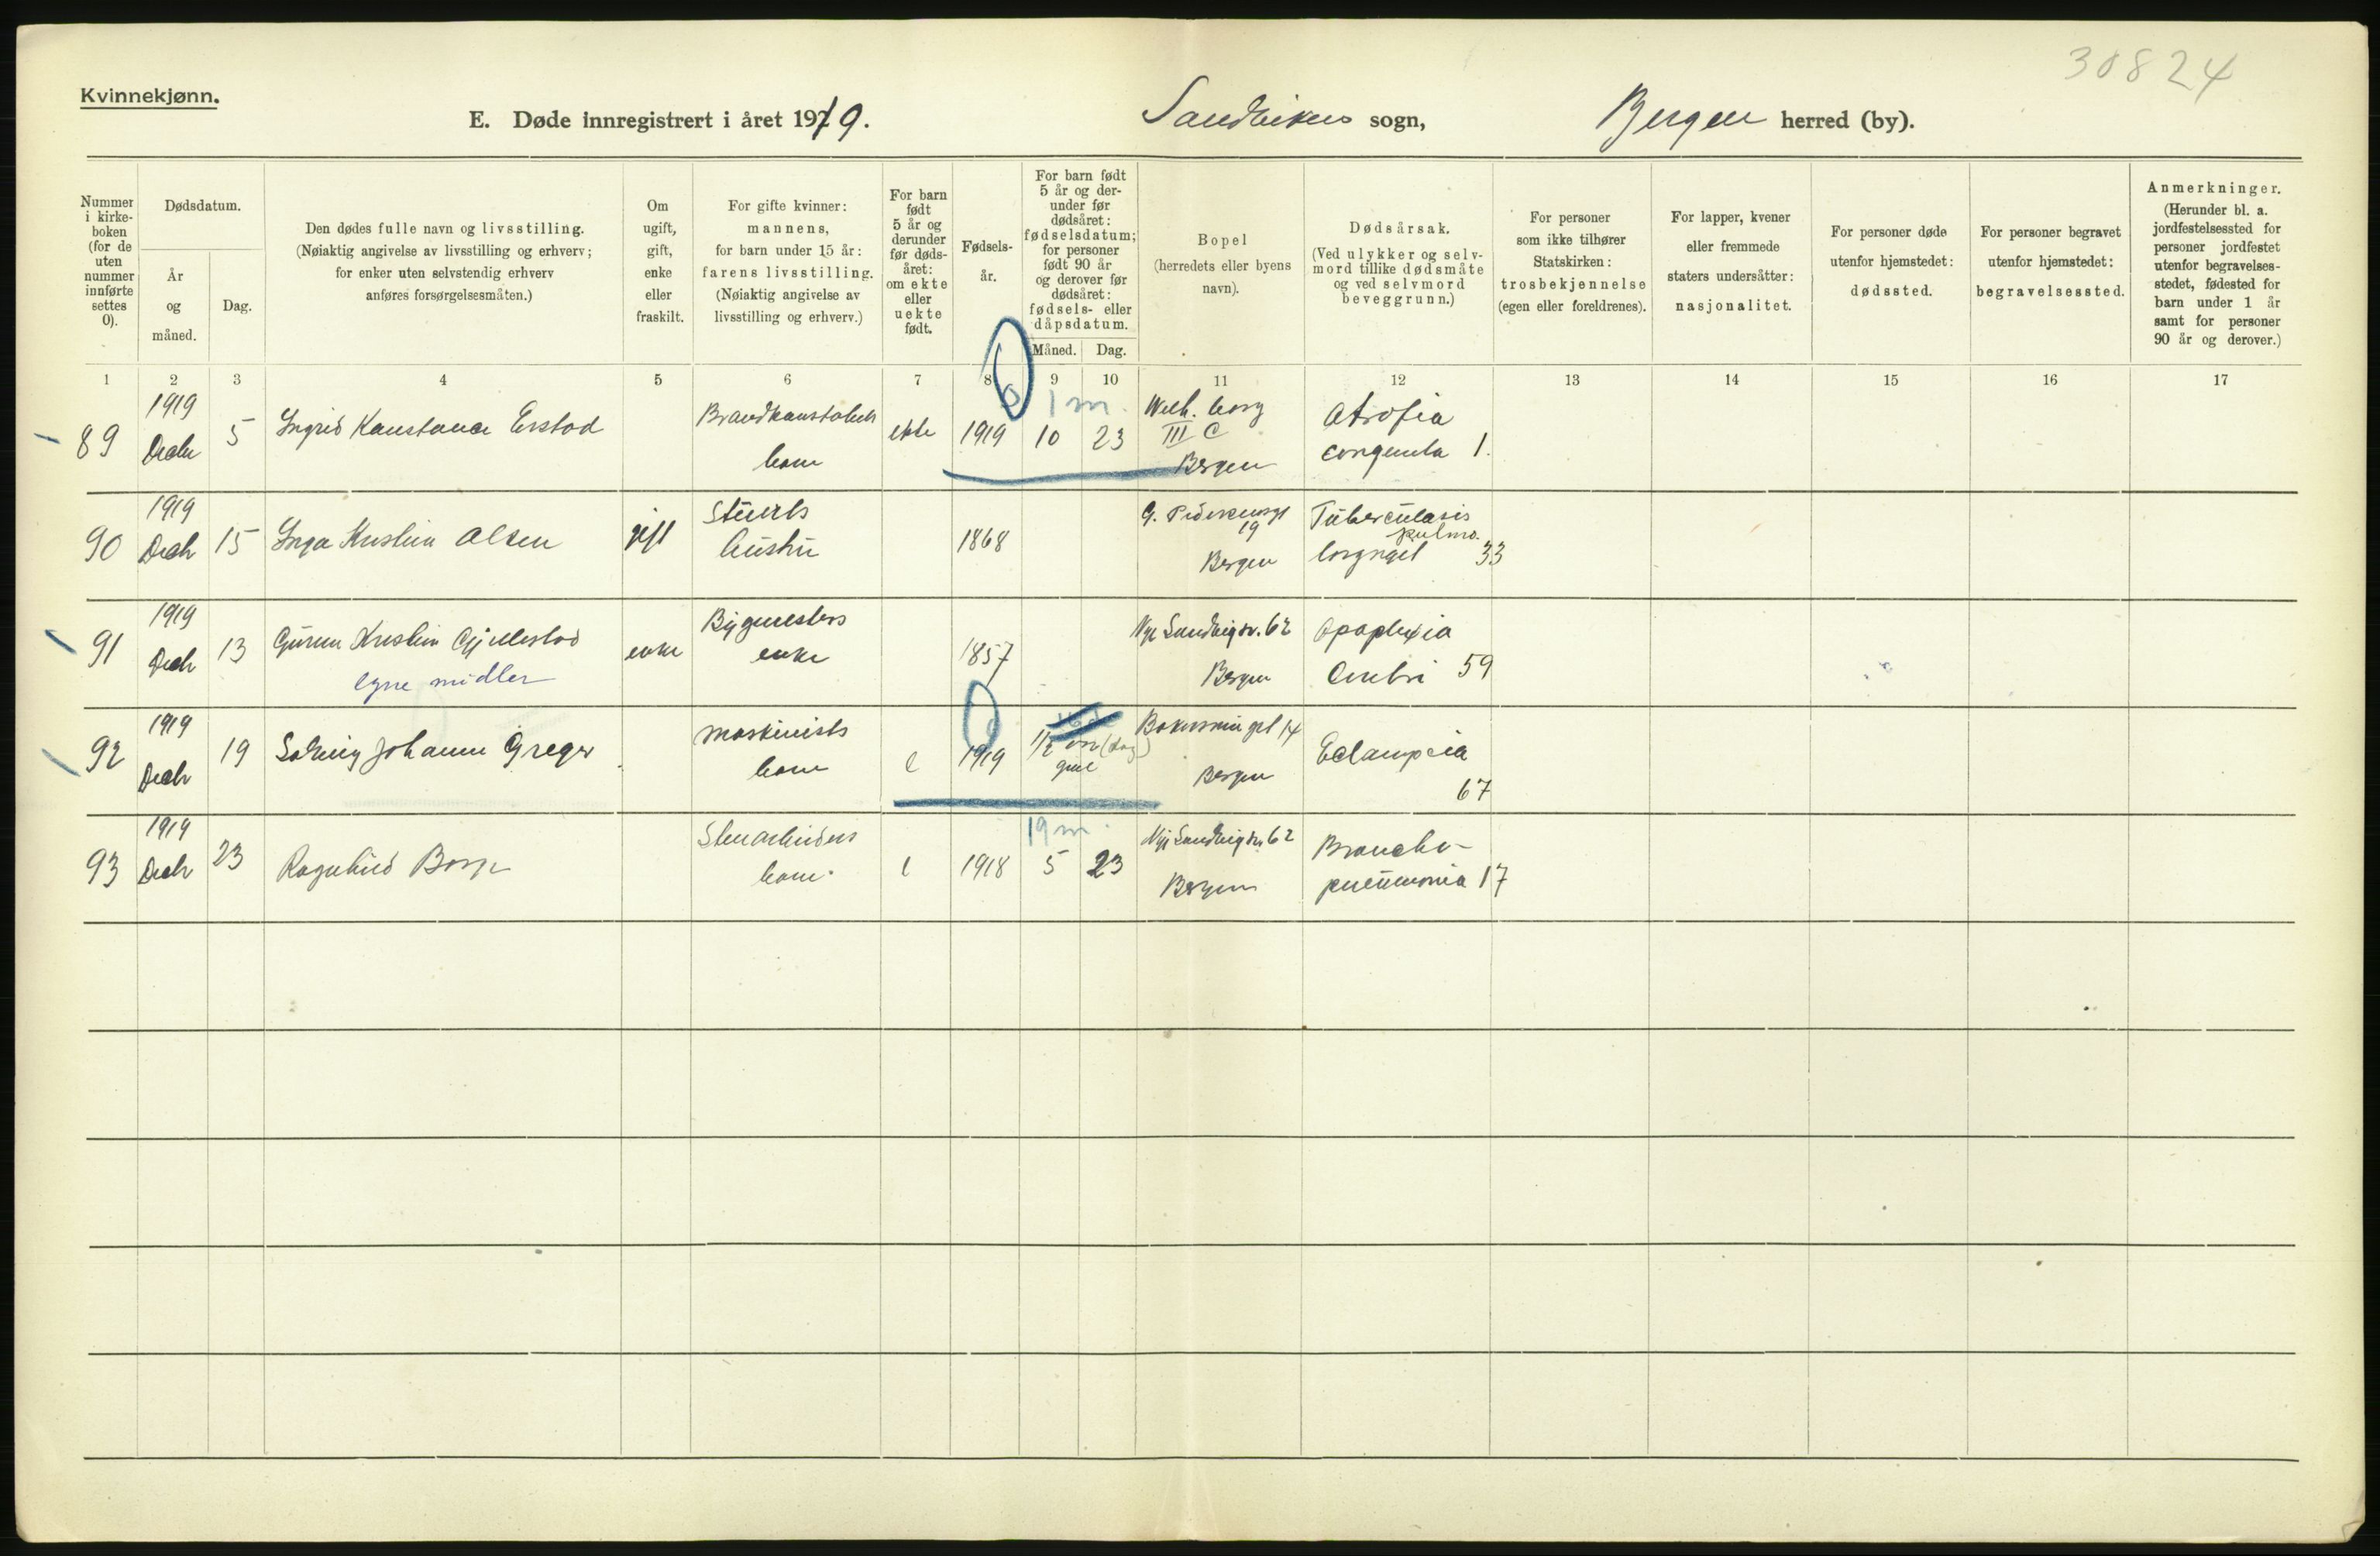 30824
Kvinnekjønn.
E. Døde innregistrert i året 1919. Sandvikens sogn, Bergen herred (by).
Nummer i kirkeboken (for de uten nummer innførte settes 0).
Dødsdatum.
År og måned.
Dag.
Den dødes fulle navn og livsstilling.
(Nøiaktig angivelse av livsstilling og erhverv;
for enker uten selvstendig erhverv
anføres forsørgelsesmåten.)
Om ugift, gift, enke eller fraskilt.
For gifte kvinner:
mannens,
for barn under 15 år:
farens livsstilling.
(Nøiaktig angivelse av
livsstilling og erhverv.)
For barn født 5 år og derunder før dødsåret: om ekte eller uekte født.
Fødselsår.
For barn født 5 år og derunder før dødsåret: fødselsdatum; for personer født 90 år og derover før dødsåret: fødsels- eller dåpsdatum.
Måned. Dag.
Bopel
(herredets eller byens
navn).
Dødsårsak.
(Ved ulykker og selvmord tillike dødsmåte og ved selvmord beveggrunn.)
For personer
som ikke tilhører
Statskirken:
trosbekjennelse
(egen eller foreldrenes).
For lapper, kvener
eller fremmede
staters undersåtter:
nasjonalitet.
For personer døde
utenfor hjemstedet:
dødssted.
For personer begravet
utenfor hjemstedet:
begravelsessted.
Anmerkninger.
(Herunder bl. a.
jordfestelsessted for
personer jordfestet
utenfor begravelsesstedet, fødested for
barn under 1 år
samt for personer
90 år og derover.)
1 2 3 4 5 6 7 8 9 10 11 12 13 14 15 16 17
89 1919 Decbr 5 Ingrid Konstance Erstad Brandkonstabels barn ekte 1919 1 m. 10 23 III C Bergen Atrofia congenita 1.
90 1919 Decb 15 Inga Kristine Olsen gift Stuerts hustru 1868 G. Pedersensgt 19 Bergen Tuberculosis pulmo. laryngel 33
91 1919 Decb 13 Kristine Gjellestad egne midler enke Bygmesters enke 1857 Nye Sandvigsv. 62 Bergen Apoplexia Cerebri 59
92 1919 Decb 19 Solveig Johanne Greger maskinists barn e 1919 1/2 Bergen Eclampsia 67
93 1919 Decb 23 Ragnhild Borge Stenarbeiders barn e 1918 19 m. 5 23 Nye Sandvigsv. 62 Bergen Broncho-pneumonia 17